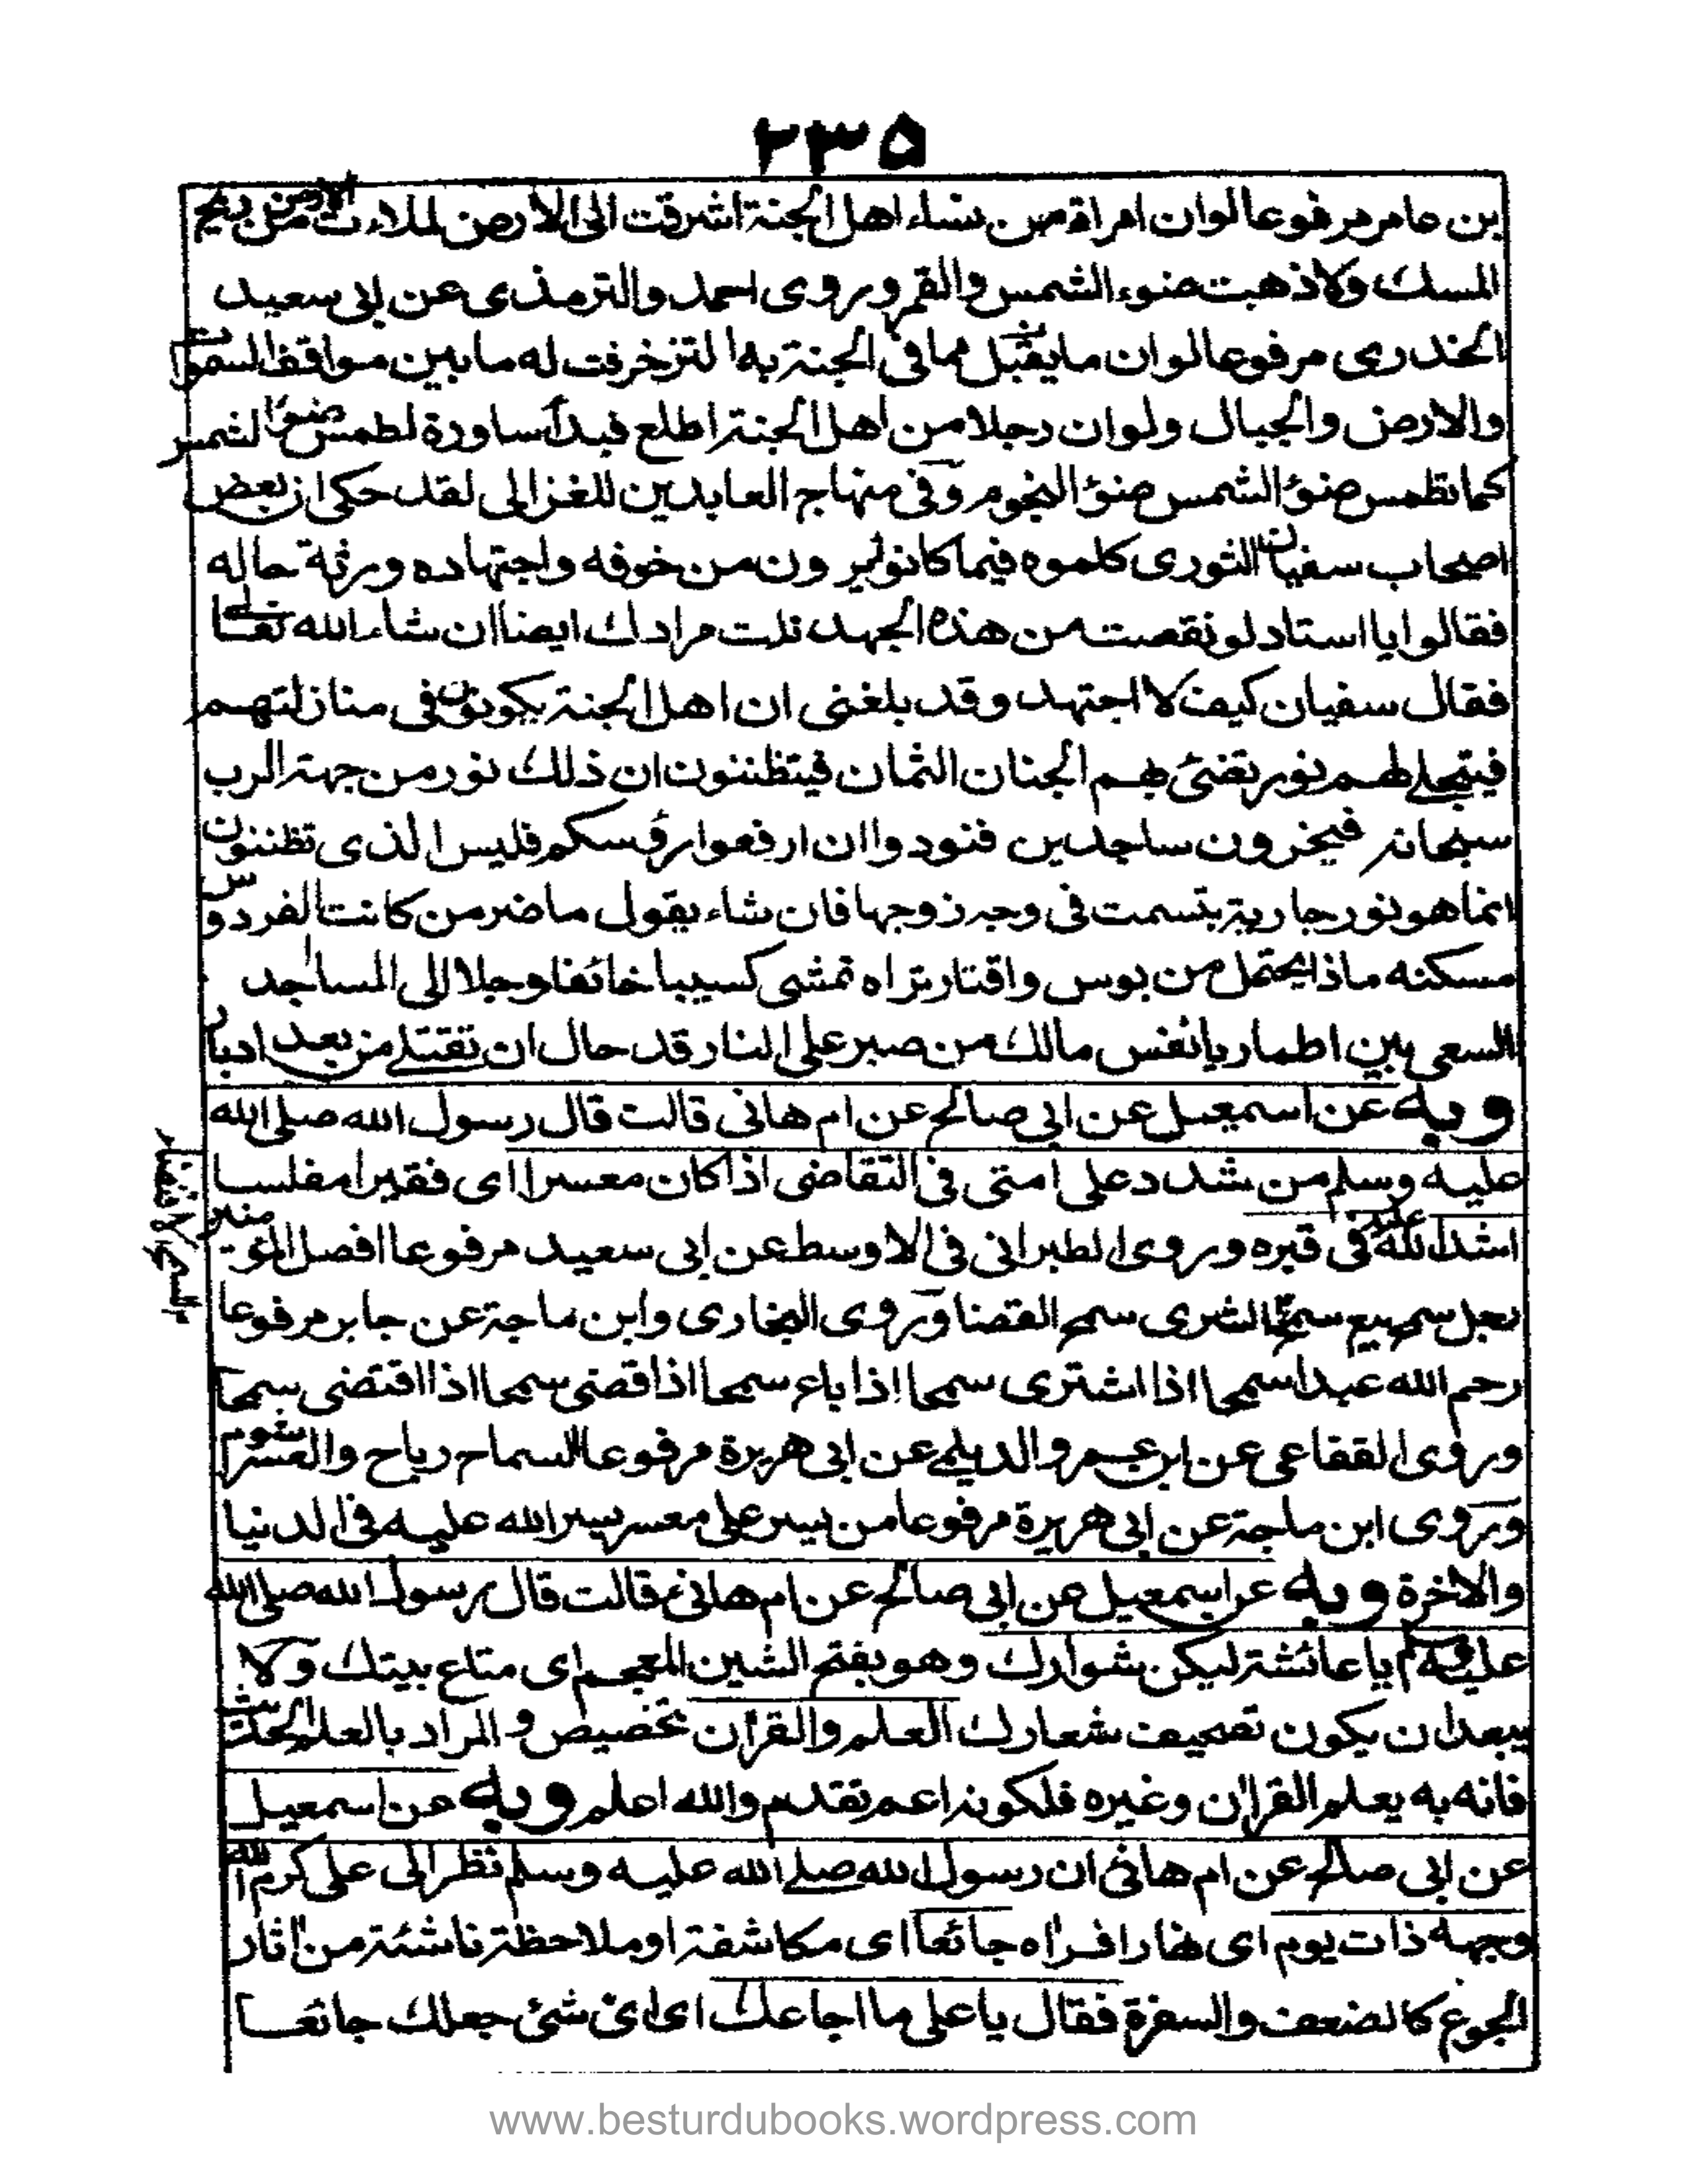 ٢٣٥
بن عامر مرفوعا لوان امراة من نساء اهل الجنة اشرقت الى الارض لملاءت الارض من ريح
المسك ولاذهبت ضوء الشمس والقمر وروى احمد والترمذى عن ابى سعيد
الخدرى مرفوعا لوان ما يقل مما فى الجنة بدا لتزخرفت له ما بين مواقف السموات
والارض والجبال ولوان رجلا من اهل الجنة اطلع فبدا ساورة لطمس ضوء الشمس
كما تطمس ضوء الشمس ضوء النجوم وفى منهاج العابدين للغزالى لقد حكى ان بعض
اصحاب سفيان الثورى كلموه فيما كانوا يرون من خوفه واجتهاده ورثة حاله
فقالوا يا استاد لو نقصت من هذه الجهد نلت مرادك ايضا ان شاء الله تعالى
فقال سفيان كيف لا اجتهد وقد بلغنى ان اهل الجنة يكونون فى منازلتهم
فيتجلى لهم نور تضئ لهم الجنان الثمان فيتظننون ان ذلك نور من جهة الرب
سبحانه فيخرون ساجدين فنودوا ان ارفعوا رؤسكم فليس الذى تظننون
انما هو نور جارية بتسمت فى وجه زوجها فان شاء يقول ما ضر من كانت الفردوس
مسكنه ماذا يحتمل من بوس واقتار تراه تمشى كسيبا خائفا وجلا الى المساجد
السعى بين اطمار يا نفس مالك من صبر على النار قد حال ان تقتلى من بعد ادبار
وبه عن اسمعيل عن ابى صالح عن ام هانى قالت قال رسول الله صلى الله
عليه وسلم من شدد على امتى فى التقاضى اذا كان معسرا اى فقيرا مفلسا
اشد الله عليه فى قبره وروى الطبرانى فى الاوسط عن ابى سعيد مرفوعا افضل المؤمنين
رجل سمح البيع سمح الشرى سمح القضا وروى البخارى وابن ماجة عن جابر مرفوعا
رحم الله عبدا سمحا اذا اشترى سمحا اذا باع سمحا اذا قضى سمحا اذا اقتضى سمحا
وروى القفاعى عن ابن عمر والديلمى عن ابى هريرة مرفوعا السماح رباح والعسر شوم
وروى ابن ماجة عن ابى هريرة مرفوعا من يسر على معسر يسر الله عليه فى الدنيا
والاخرة وبه عن اسمعيل عن ابى صالح عن ام هانئ قالت قال رسول الله صلى الله
عليه وسلم يا عائشة ليكن شوارك وهو بفتح الشين المعجمه اى متاع بيتك ولا
يبعد ان يكون تصحيف شعارك العلم والقران تخصيص والمراد بالعلم الحديث
فانه به يعلم القران وغيره فلكونه اعم تقدم والله اعلم وبه عن اسمعيل
عن ابى صالح عن ام هانئ ان رسول الله صلى الله عليه وسلم نظر الى على كرم الله
وجهه ذات يوم اى نهارا فراه جائعا اى مكاشفة او ملاحظة ناشئة من اثار
الجوع كالضعف والسفرة فقال يا على ما اجاعك اى اى شئ جعلك جائعا
www.besturdubooks.wordpress.com